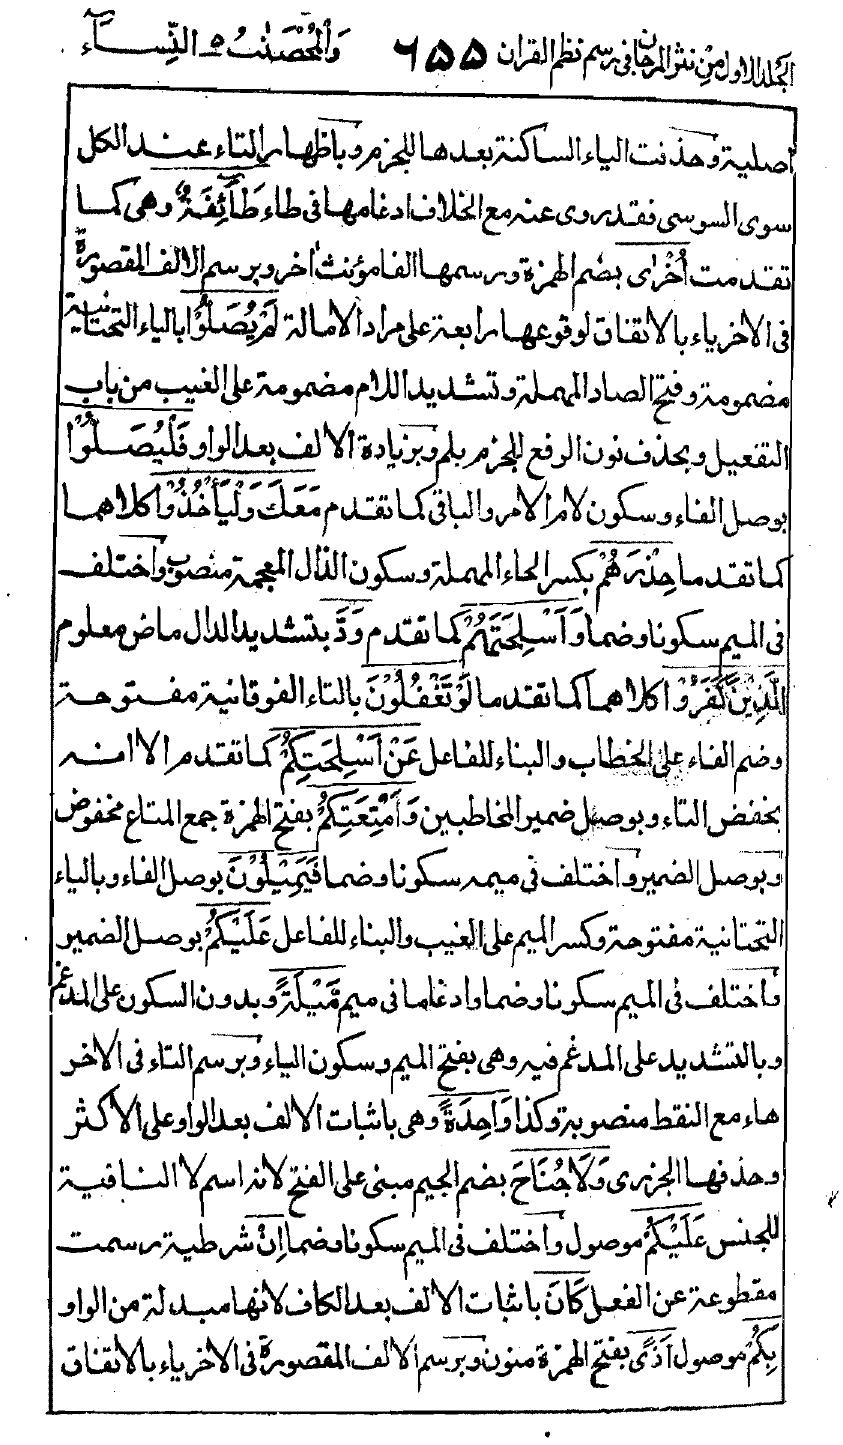 الجلد الاول من نثر المرجان فى رسم نظم القران ٦٥٥ وَالْمُحْصَنٰتُ ٥ النِّسَــآء
اصلية وحذفت الياء الساكنة بعدها للجزم وباظهار التاء عند الكل
سوى السوسى فقد روى عنه مع الخلاف ادغامها فى طاء طَآئِفَةٌ وهى كما
تقدمت اُخْرٰى بضم الهمزة ورسمها الفا مؤنث اخر وبرسم الالف المقصورة
فى الاخر ياء بالاتفاق لوقوعها رابعة على مراد الامالة لَمْ يُصَلُّوْا بالياء التحتانية
مضمومة وفتح الصاد المهملة وتشديد اللام مضمومة على الغيب من باب
التفعيل وبحذف نون الرفع للجزم بلم وبزيادة الالف بعد الواو فَلْيُصَلُّوْا
بوصل الفاء وسكون لام الامر والباقى كما تقدم مَعَكَ وَلْيَأْخُذُوْا كلاهما
كما تقدما حِذْرَهُمْ بكسر الحاء المهملة وسكون الذال المعجمة منصوب واختلف
فى الميم سكونا وضما وَاَسْلِحَتَهُمْ كما تقدم وَدَّ بتشديد الدال ماض معلوم
الَّذِيْنَ كَفَرُوْا كلاهما كما تقدما لَوْ تَغْفُلُوْنَ بالتاء الفوقانية مفتوحة
وضم الفاء على الخطاب والبناء للفاعل عَنْ اَسْلِحَتِكُمْ كما تقدم الا انه
بخفض التاء وبوصل ضمير المخاطبين وَاَمْتِعَتِكُمْ بفتح الهمزة جمع المتاع مخفوض
وبوصل الضمير واختلف فى ميمه سكونا وضما فَيَمِيْلُوْنَ بوصل الفاء وبالياء
التحتانية مفتوحة وكسر الميم على الغيب والبناء للفاعل عَلَيْكُمْ بوصل الضمير
واختلف فى الميم سكونا وضما وادغاما فى ميم مَّيْلَةً وبدون السكون على المدغم
وبالتشديد على المدغم فيه وهى بفتح الميم وسكون الياء وبرسم التاء فى الاخر
هاء مع النقط منصوبة وكذا وَاحِدَةً وهى باثبات الالف بعد الواو على الاكثر
وحذفها الجزرى وَلَا جُنَاحَ بضم الجيم مبنى على الفتح لانه اسم لا النافية
للجنس عَلَيْكُمْ موصول واختلف فى الميم سكونا وضما اِنْ شرطية رسمت
مقطوعة عن الفعل كَانَ باثبات الالف بعد الكاف لانها مبدلة من الواو
بِكُمْ موصول اَذًى بفتح الهمزة منون وبرسم الالف المقصورة فى الاخر ياء بالاتفاق